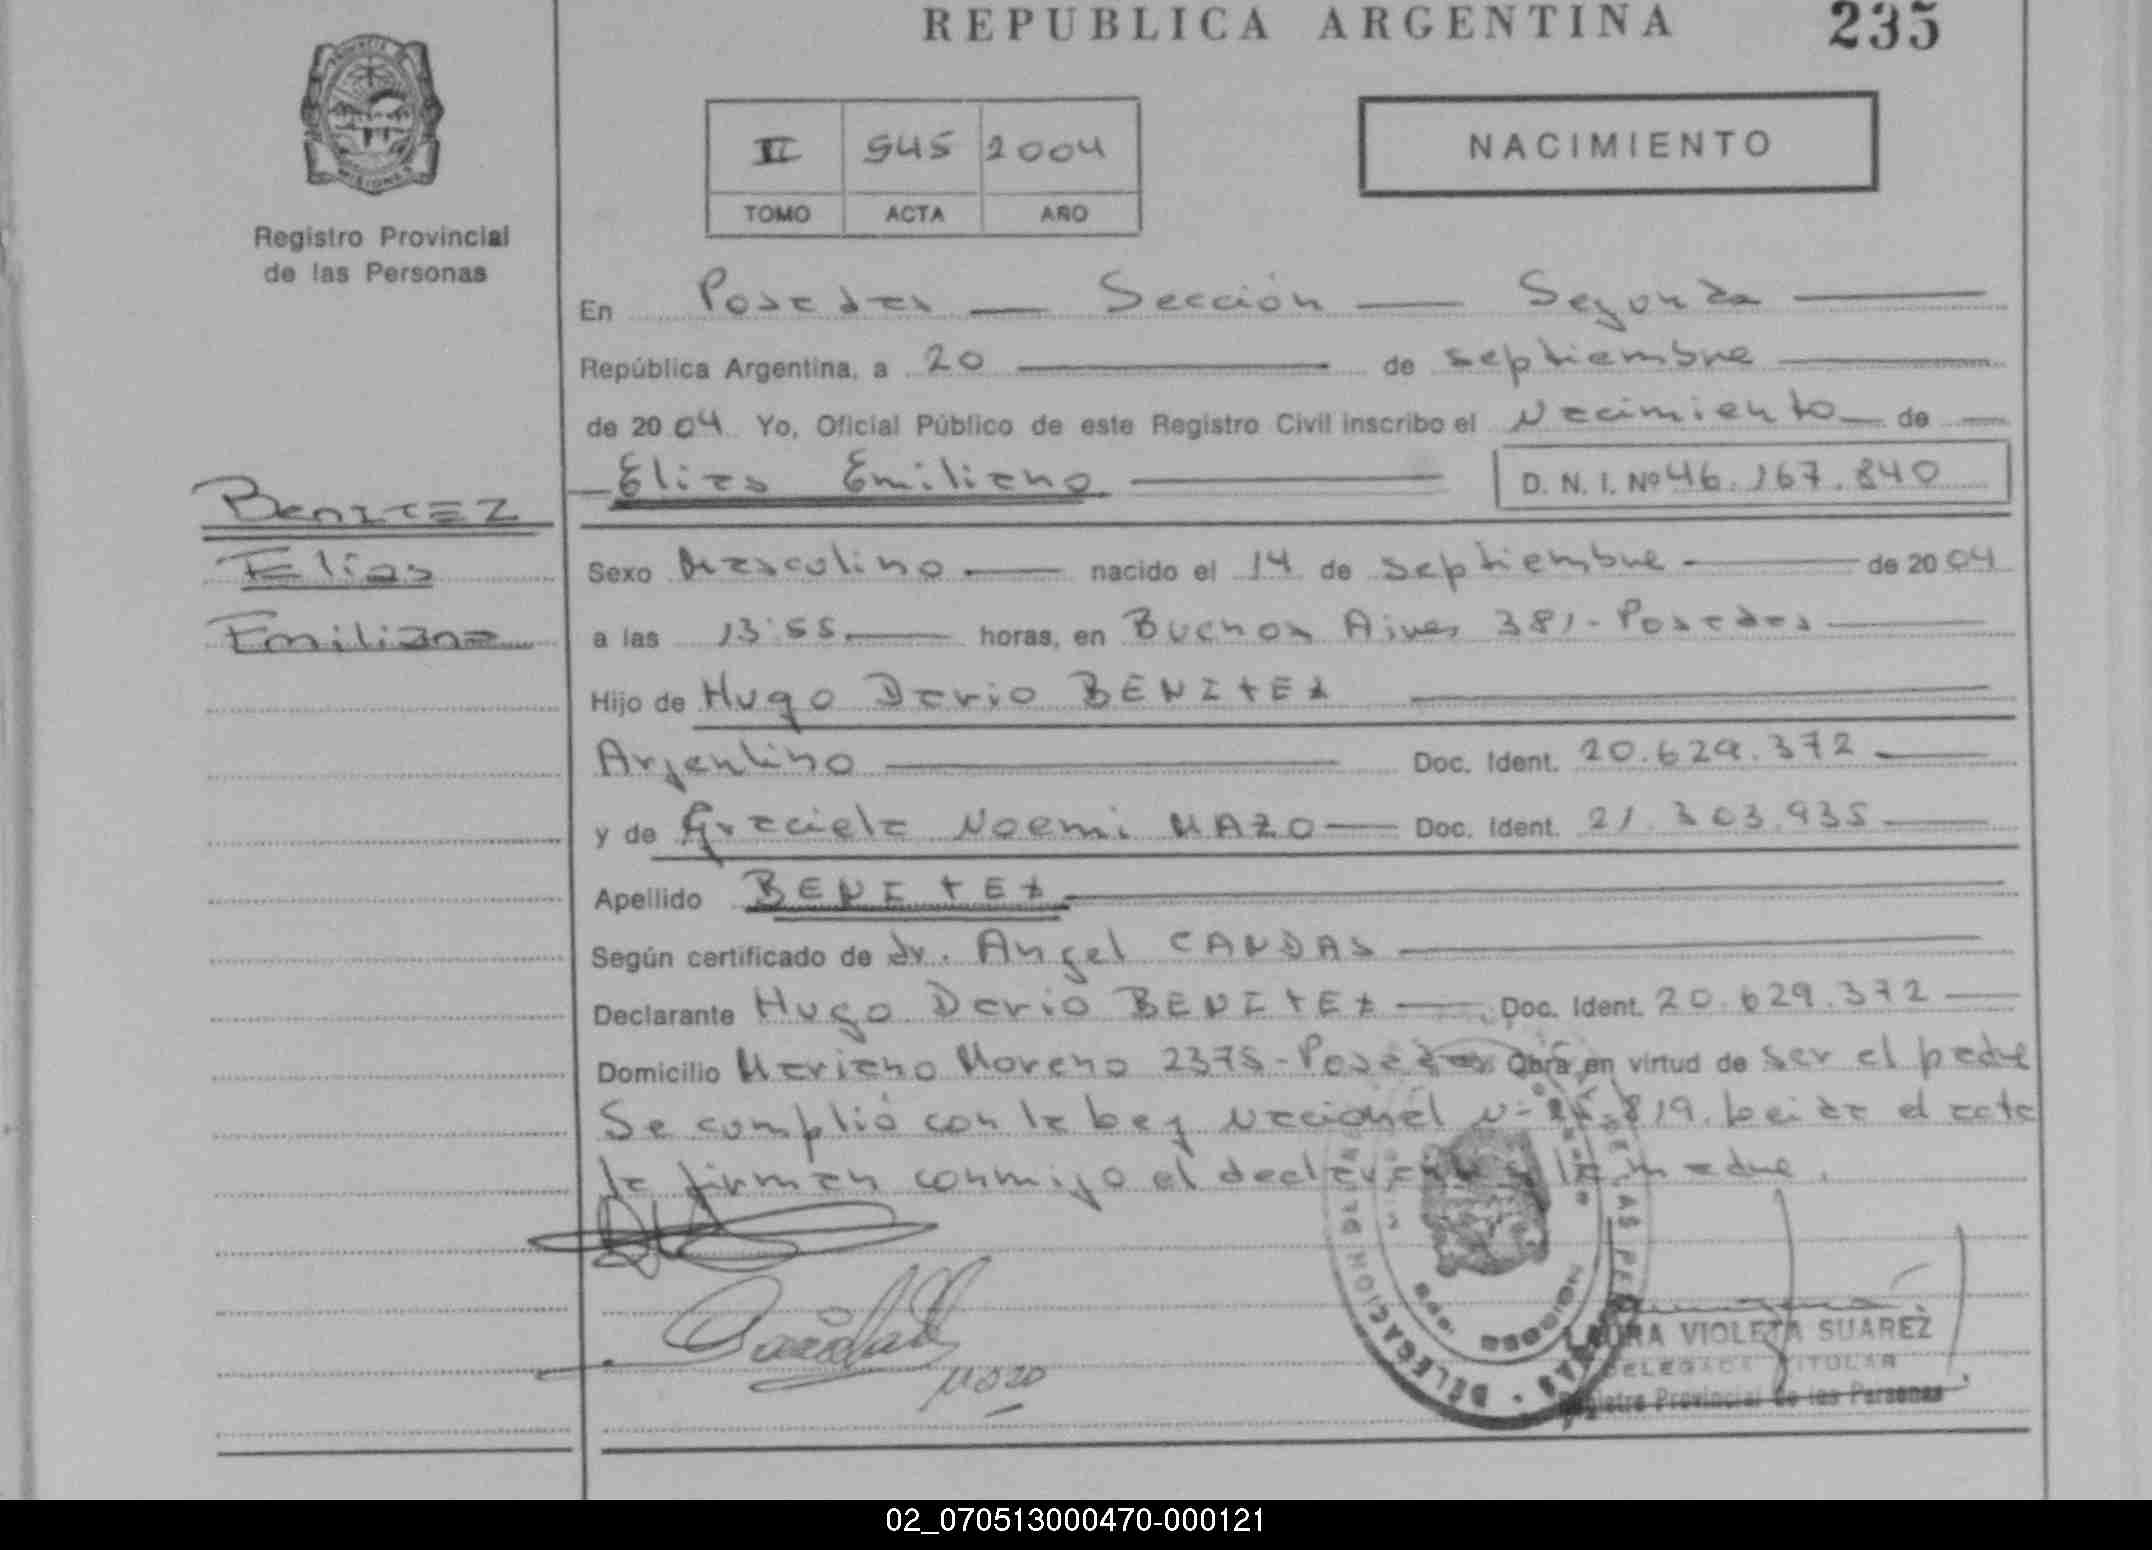 REPUBLICA ARGENTINA
235
PROVINCIA
MISIONES
Registro Provincial
de las Personas
II 545 2004
TOMO ACTA AÑO
NACIMIENTO
En Posadas — Sección — Segunda
República Argentina, a 20 de septiembre
de 2004 Yo, Oficial Público de este Registro Civil inscribo el Nacimiento de
Elias Emiliano
D. N. I. Nº 46.167.840
BENITEZ
Elías
Emiliano
Sexo Masculino nacido el 14 de septiembre de 2004
a las 13:55 horas, en Buenos Aires 381- Posadas
Hijo de Hugo Dario BENITEZ
Argentino Doc. Ident. 20.629.372
y de Graciela Noemi MAZO Doc. Ident. 21.303.935
Apellido BENITEZ
Según certificado de dr. Angel CANDAS
Declarante Hugo Dario BENITEZ Doc. Ident. 20.629.372
Domicilio Mariano Moreno 2375 - Posadas Obra en virtud de ser el padre
Se cumplió con la Ley Nacional Nº 819. Leida el acta
la firman conmigo el declarante y la madre.
Mazo
VIOLETA SUAREZ
DELEGADA TITULAR
Registro Provincial de las Personas
DELEGACION
02_070513000470-000121